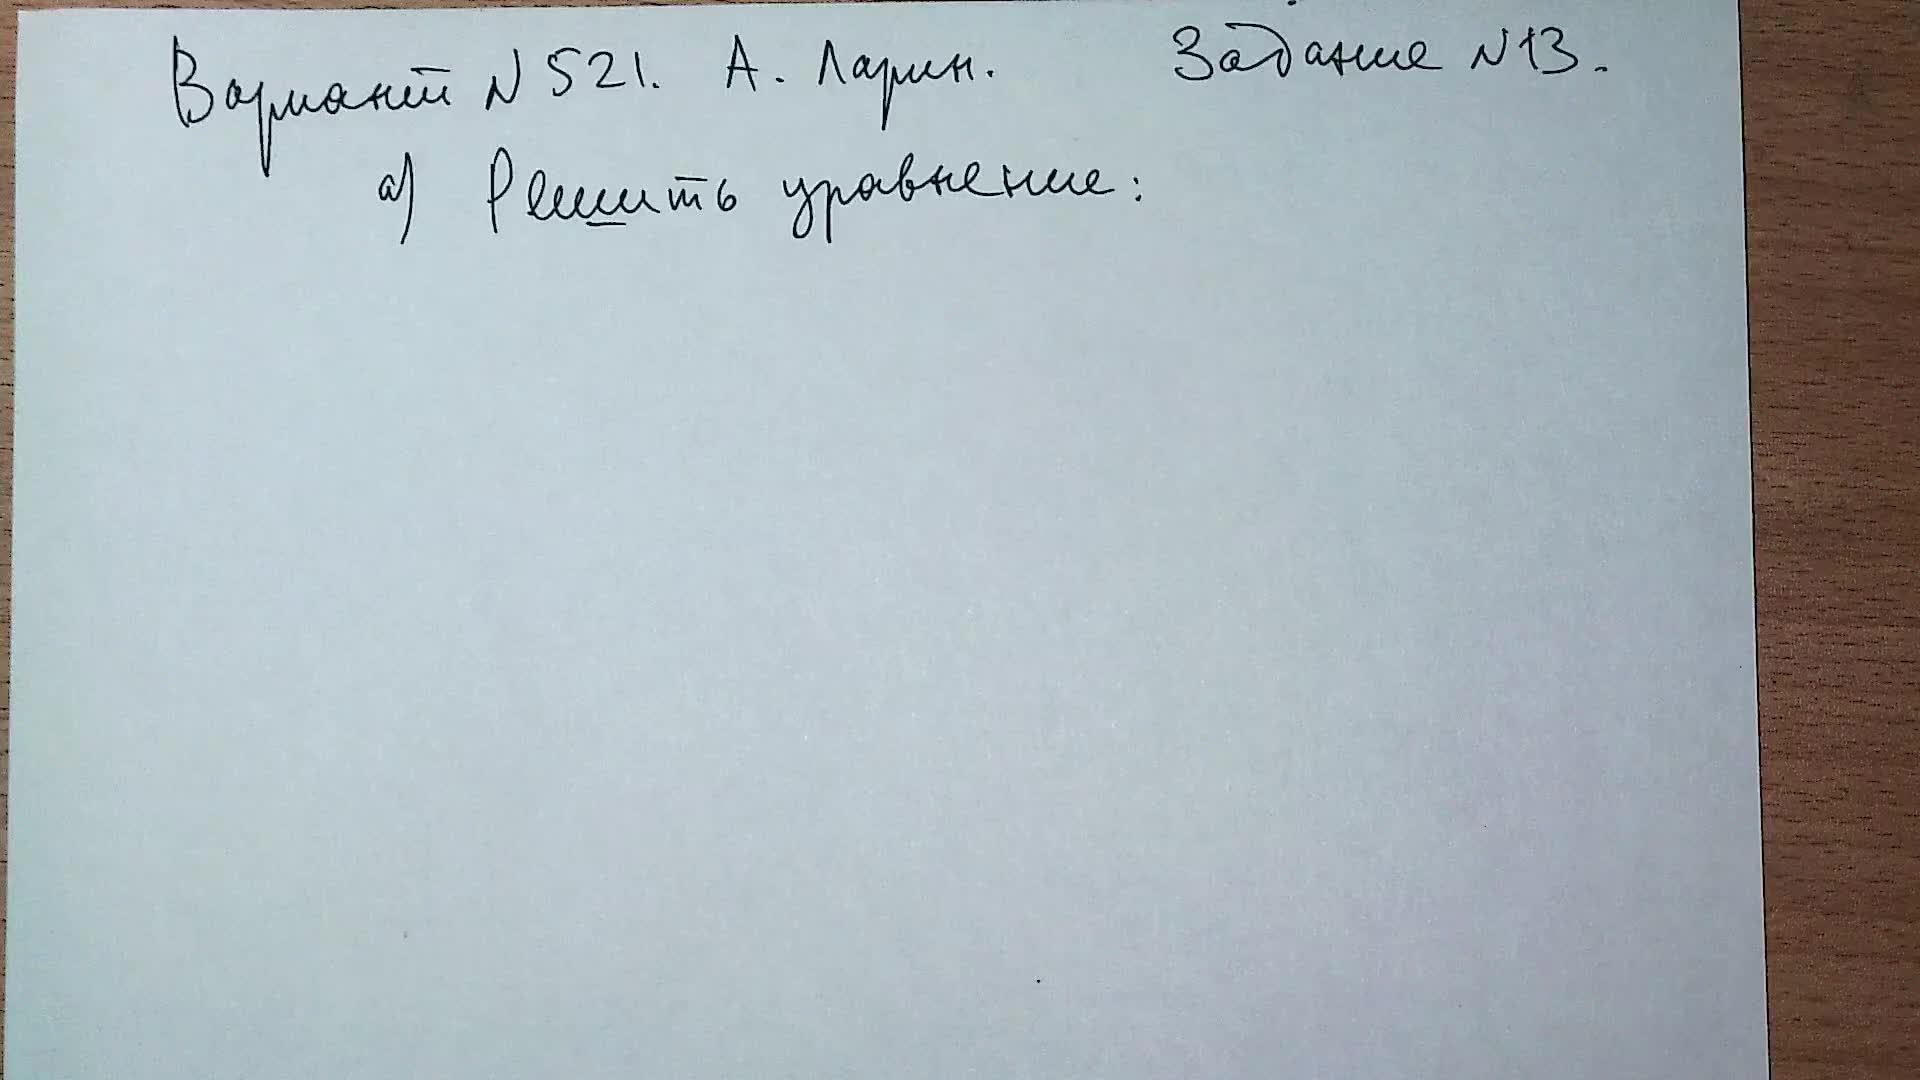 Вариант N 521. А. Ларин. Задание N13.
а) Решить уравнение: